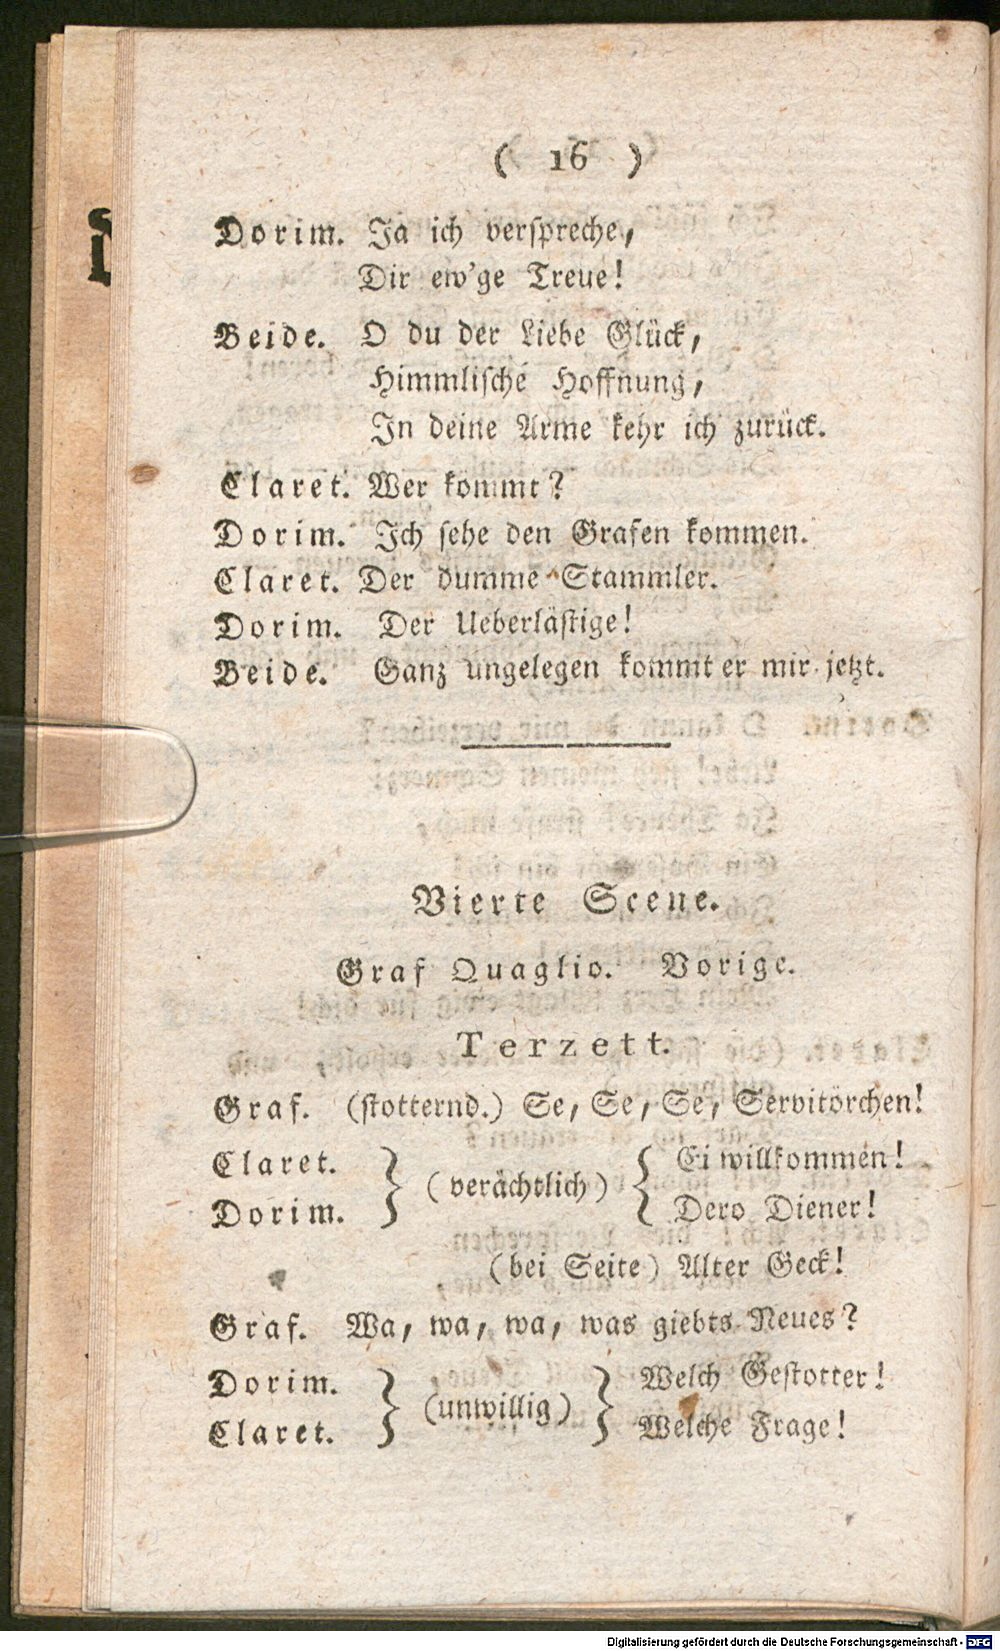 ( 16 )
Dorim. Ja ich verspreche,
Dir ew'ge Treue!
Beide. O du der Liebe Glück,
Himmlische Hoffnung,
In deine Arme kehr ich zurück.
Claret. Wer kömmt?
Dorim. Ich sehe den Grafen kommen.
Claret. Der dumme Stammler.
Dorim. Der Ueberlästige!
Beide. Ganz ungelegen kommt er mir jetzt.
Vierte Scene.
Graf Quaglio. Vorige.
Terzett.
Graf. (stotternd.) Se, Se, Se, Servitörchen!
Claret. } (verächtlich) { Ei willkommen!
Dorim. Dero Diener!
(bei Seite) Alter Geck!
Graf. Wa, wa, wa, was giebts Neues?
Dorim. } (unwillig) } Welch Gestotter!
Claret. Welche Frage!
Digitalisierung gefördert durch die Deutsche Forschungsgemeinschaft - DFG